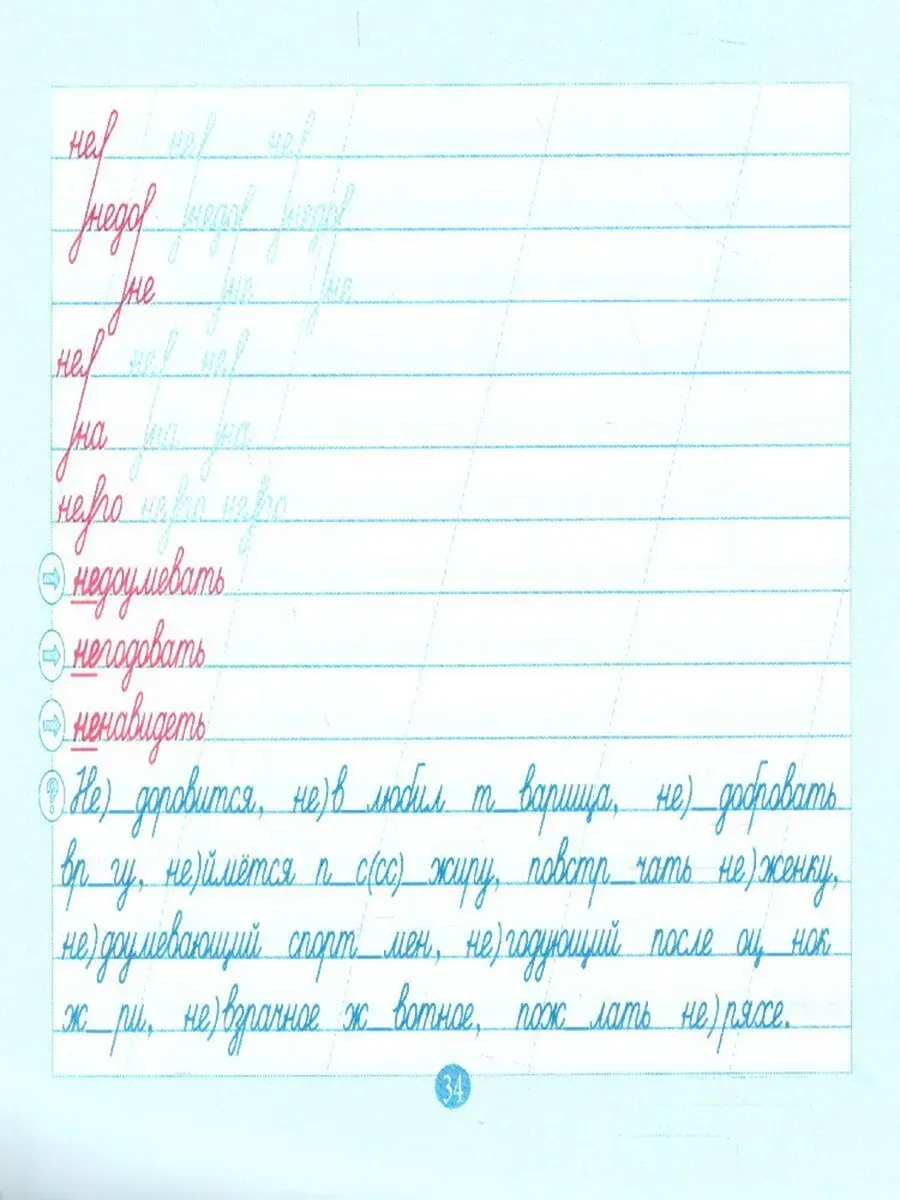 не/ не/ не/
недо/ недо/ недо/
не не не
не/ не/ не/
на на на
не/го не/го не/го
недоумевать
негодовать
ненавидеть
? Не)_доровится, не)в_любил т_варища, не)_добровать
вр_гу, не)ймётся п_с(сс)_жиру, повстр_чать не)женку,
не)доумевающий спорт_мен, не)годующий после оц_нок
ж_ри, не)взрачное ж_вотное, пож_лать не)ряхе.
34